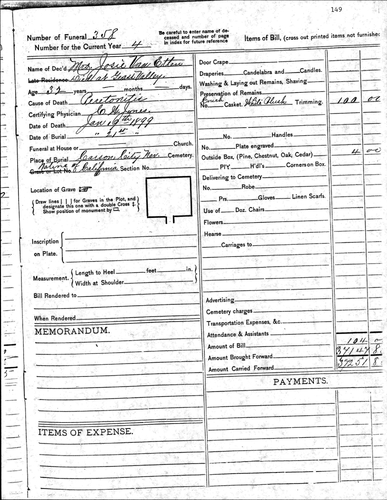 149
Number of Funeral 358
Number for the Current Year 4
Be carefull to enter name of deceased and number of page in index for future reference
Items of Bill, (cross out printed items not furnished
Name of Dec'd Mrs Josie Van Etten
Late Residence Died at Grass Valley
Age 32 years — months — days.
Cause of Death Peritonitis
Certifying Physician Jones
Date of Death Jan 19th 1899
Date of Burial " 21st "
Funeral at House or Church.
Place of Burial Carson City Nev. Cemetery.
Native of California
Grave or Lot No. Section No.
Location of Grave
Draw lines [ ] for Graves in the Plot, and designate this one with a double Cross
Show position of monument by
Inscription on Plate.
Measurement. Length to Heel feet in.
Width at Shoulder
Bill Rendered to
When Rendered
MEMORANDUM.
ITEMS OF EXPENSE.
Door Crape
Draperies Candelabra and Candles.
Washing & Laying out Remains, Shaving
Preservation of Remains
No. Casket White Plush Trimming. 100 00
No. Handles
Plate engraved
Outside Box (Pine, Chestnut, Oak, Cedar) 4 00
Delivering to Cemetery
No. Robe
Prs. Gloves Linen Scarfs.
Use of Doz. Chairs
Flowers
Hearse
Carriages to
Advertising
Cemetery charges
Transportation Expenses, &c.
Attendance & Assistants
Amount of Bill 104
Amount Brought Forward
Amount Carried Forward
PAYMENTS.